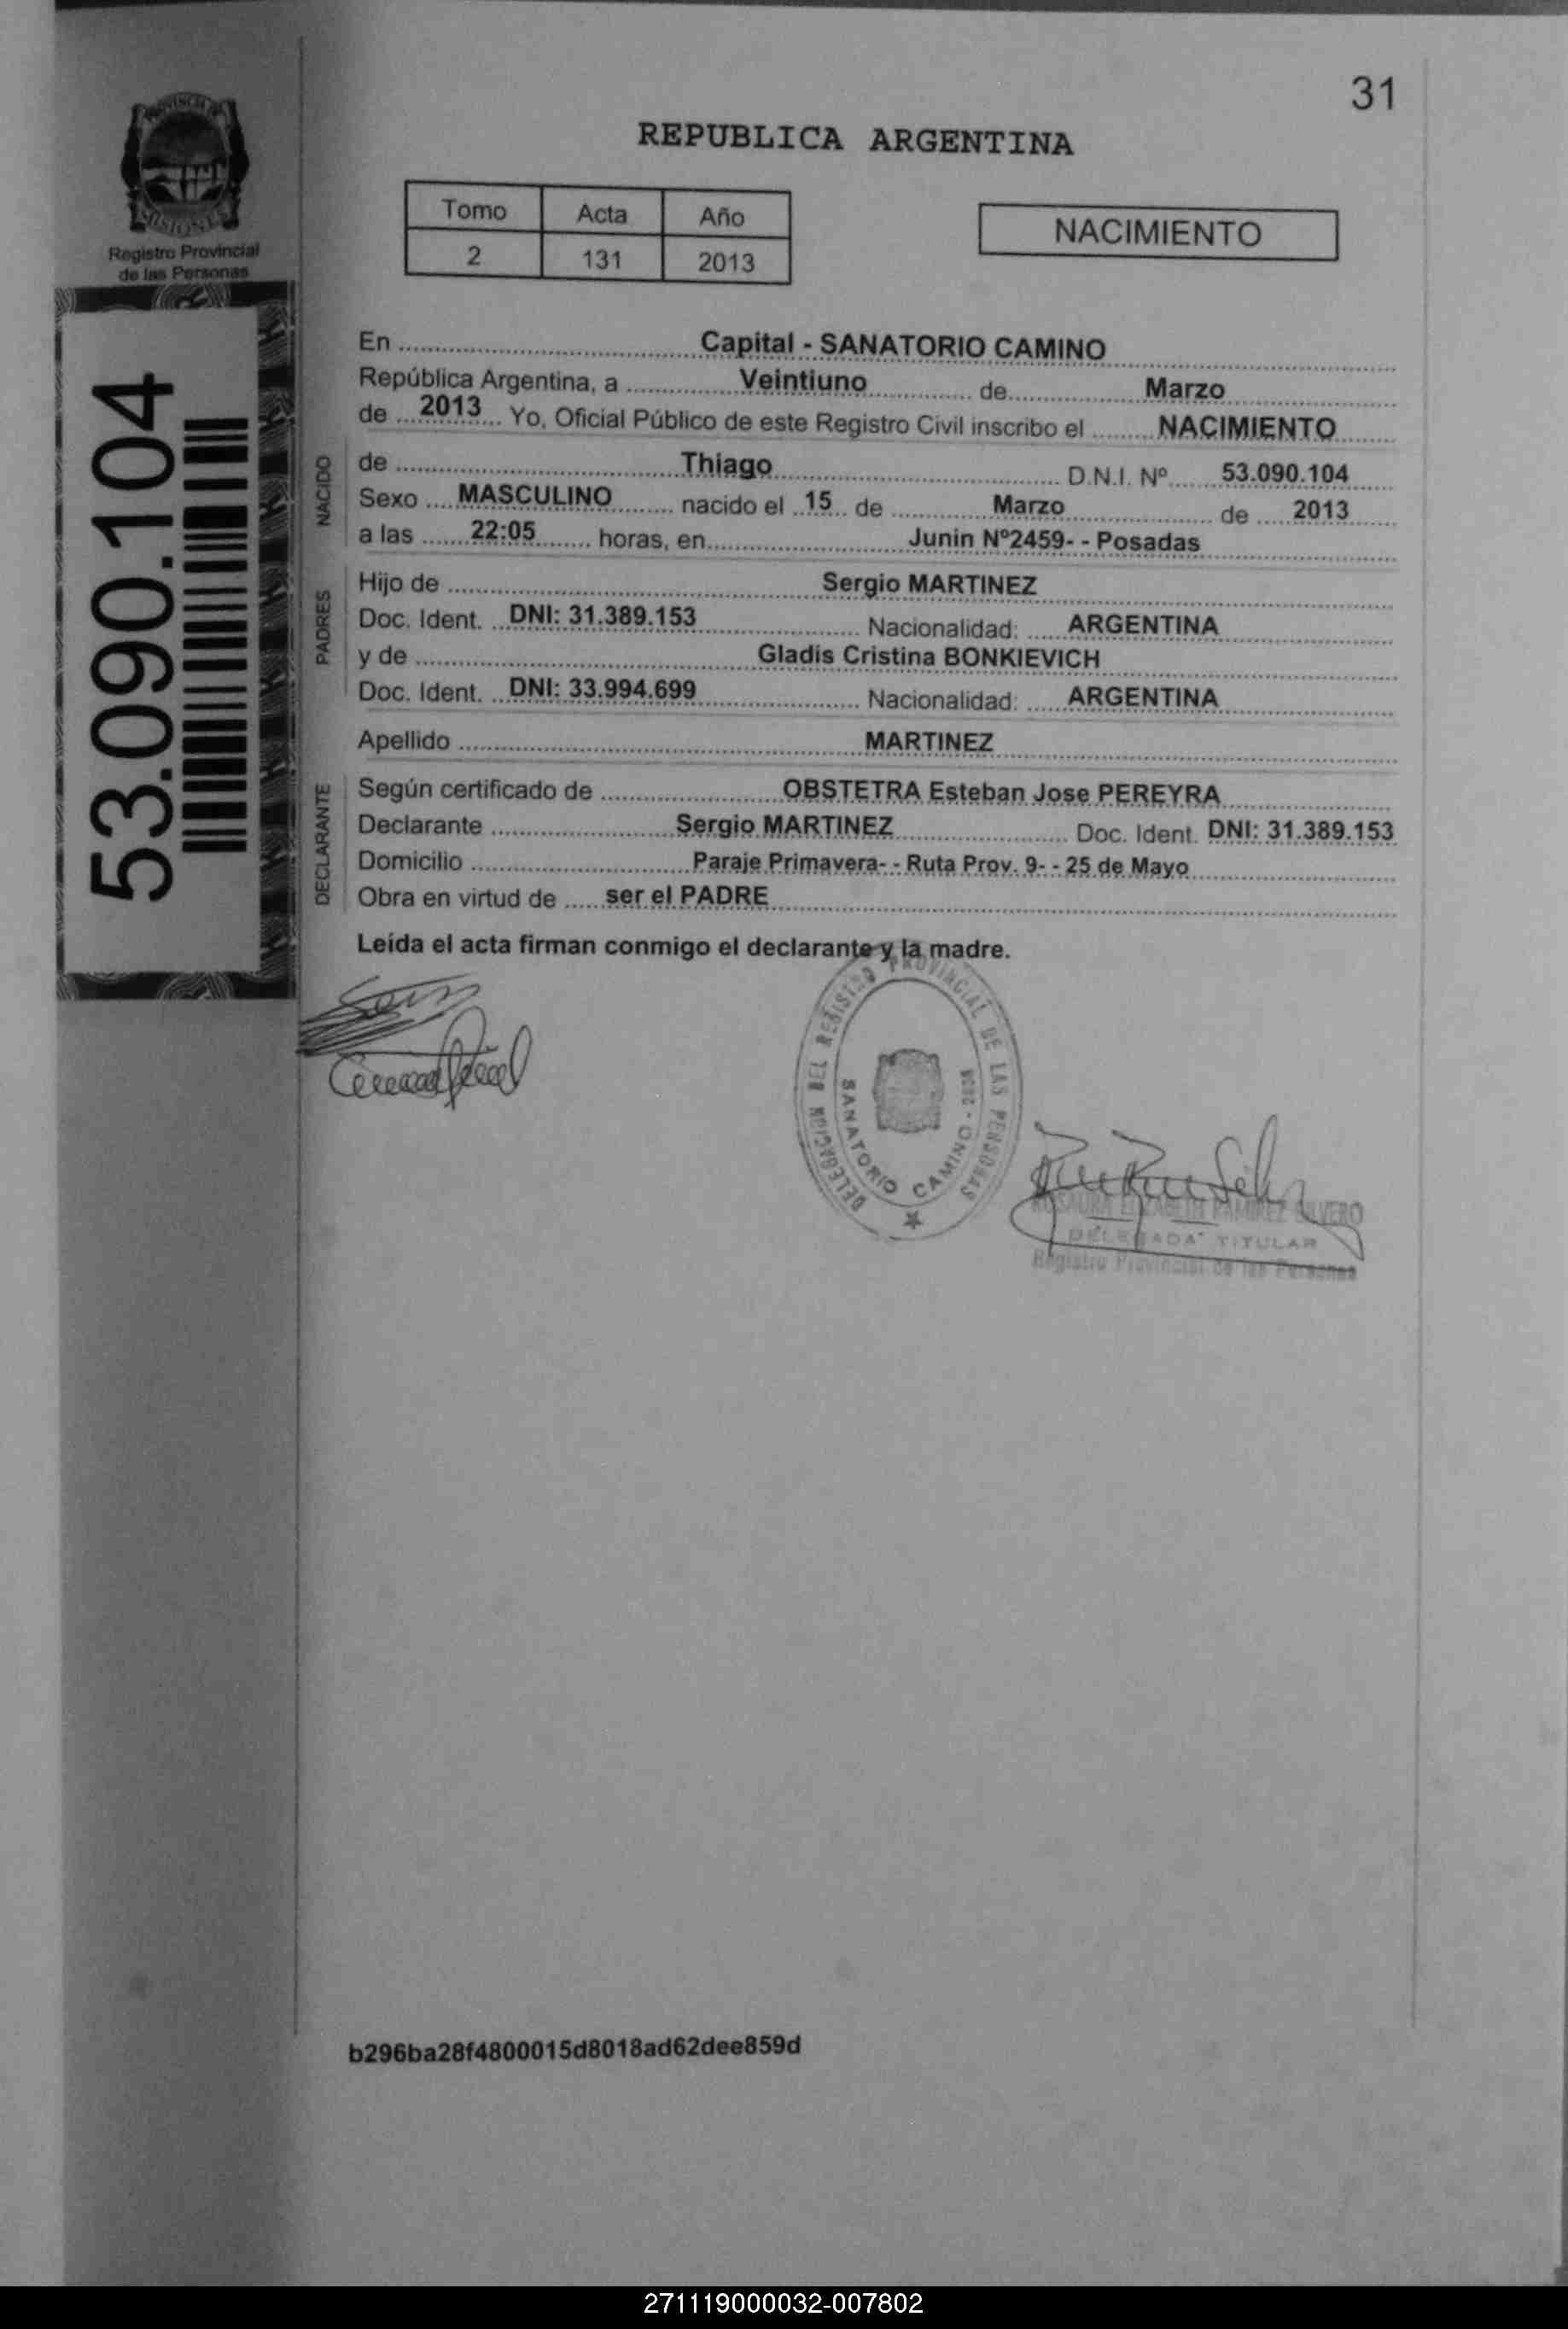 31
REPUBLICA ARGENTINA
PROVINCIA DE
MISIONES
Registro Provincial
de las Personas
Tomo Acta Año
2 131 2013
NACIMIENTO
53.090.104
En Capital - SANATORIO CAMINO
República Argentina, a Veintiuno de Marzo
de 2013 Yo, Oficial Público de este Registro Civil inscribo el NACIMIENTO
NACIDO
de Thiago D.N.I. Nº 53.090.104
Sexo MASCULINO nacido el 15 de Marzo de 2013
a las 22:05 horas, en Junin Nº2459- - Posadas
PADRES
Hijo de Sergio MARTINEZ
Doc. Ident. DNI: 31.389.153 Nacionalidad: ARGENTINA
y de Gladis Cristina BONKIEVICH
Doc. Ident. DNI: 33.994.699 Nacionalidad: ARGENTINA
Apellido MARTINEZ
DECLARANTE
Según certificado de OBSTETRA Esteban Jose PEREYRA
Declarante Sergio MARTINEZ Doc. Ident. DNI: 31.389.153
Domicilio Paraje Primavera- - Ruta Prov. 9- - 25 de Mayo
Obra en virtud de ser el PADRE
Leída el acta firman conmigo el declarante y la madre.
DELEGACION DEL REGISTRO PROVINCIAL DE LAS PERSONAS
SANATORIO CAMINO - 2838
ROSAURA ELIZABETH RAMIREZ SILVERO
DELEGADA TITULAR
Registro Provincial de las Personas
b296ba28f4800015d8018ad62dee859d
271119000032-007802